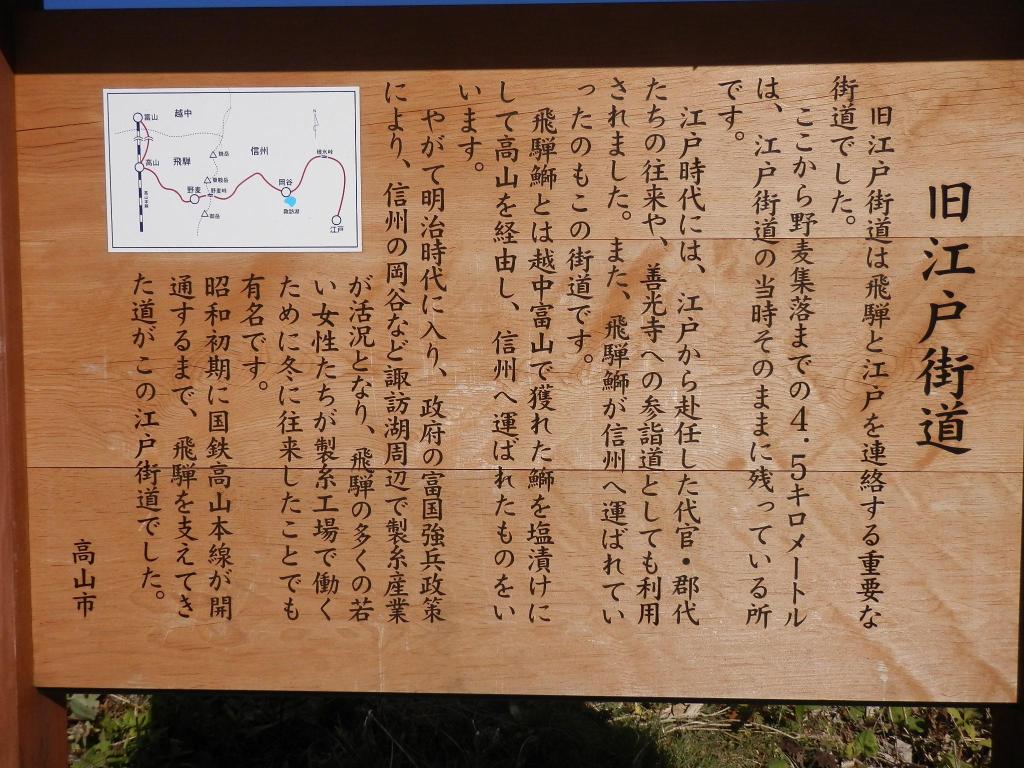 旧江戸街道
旧江戸街道は飛騨と江戸を連絡する重要な
街道でした。
ここから野麦集落までの4.5キロメートル
は、江戸街道の当時そのままに残っている所
です。
江戸時代には、江戸から赴任した代官・郡代
たちの往来や、善光寺への参詣道としても利用
されました。また、飛騨鰤が信州へ運ばれてい
ったのもこの街道です。
飛騨鰤とは越中富山で獲れた鰤を塩漬けに
して高山を経由し、信州へ運ばれたものをい
います。
やがて明治時代に入り、政府の富国強兵政策
により、信州の岡谷など諏訪湖周辺で製糸産業
が活況となり、飛騨の多くの若
い女性たちが製糸工場で働く
ために冬に往来したことでも
有名です。
昭和初期に国鉄高山本線が開
通するまで、飛騨を支えてき
た道がこの江戸街道でした。
高山市
富山
越中
高山
飛騨
信州
野麦
野麦峠
乗鞍岳
御岳
岡谷
諏訪湖
碓氷峠
江戸
高山本線
N